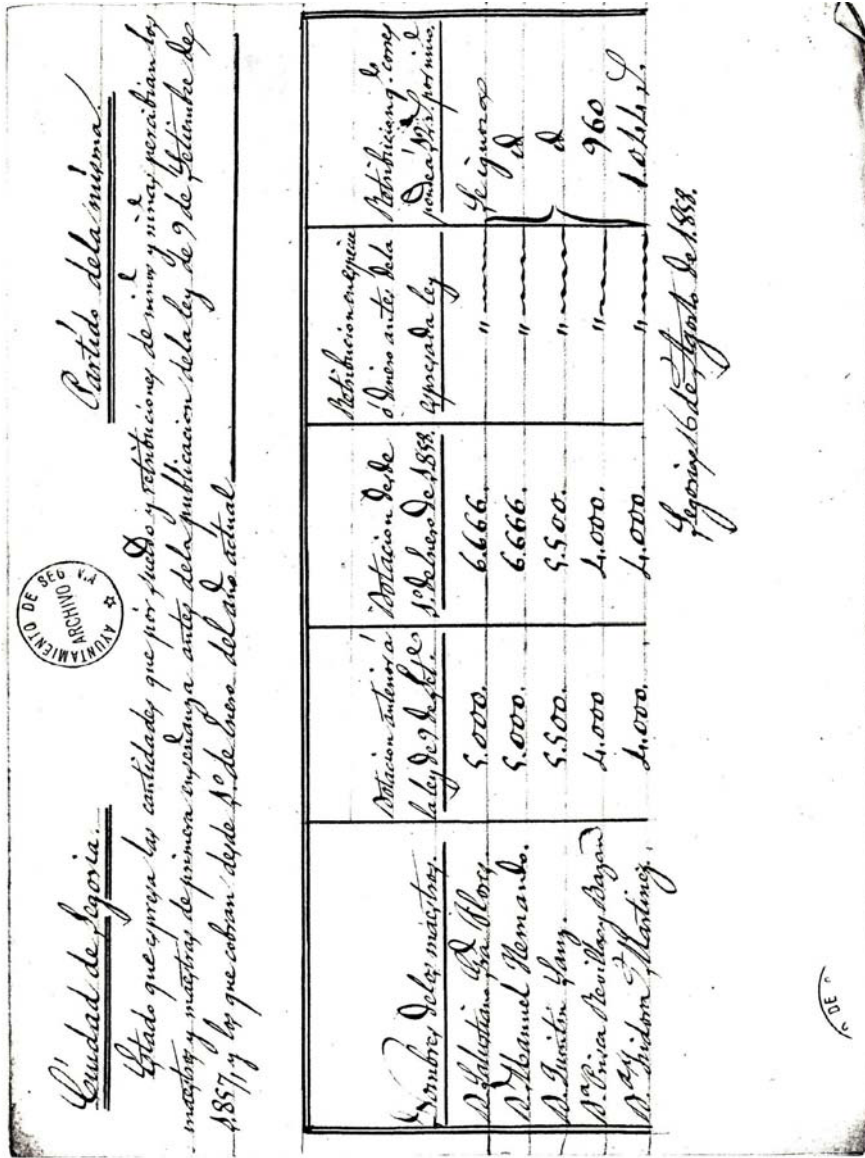 Ciudad de Segovia.
Partido de la misma.
AYUNTAMIENTO DE SEG V.A
ARCHIVO
Estado que espresa las cantidades que por sueldo y retribuciones de niños y niñas percibian los
maestros y maestras de primera enseñanza antes de la publicacion de la ley de 9 de Setiembre de
1857, y los que cobran desde 1º de Enero del año actual
Nombres de los maestros.
Dotacion anterior á la ley de 9 de Set.e
Dotacion desde 1º de Enero de 1.858.
Retribucion en especie ó dinero antes de la espresada ley
Retribucion q. corresponde á por niño.
D. Salustiano Gra Flores 5.000. 6.666. " Se ignora
D. Manuel Hernando. 5.000. 6.666. " id
D. Quintin Sanz. 5.500. 5.500. " id
D.a Prisca Revilla y Bazan 4.000 4.000. " 960
D.a Isidora Martinez. 4.000. 4.000. "
Segovia 16 de Agosto de 1.858.
DE